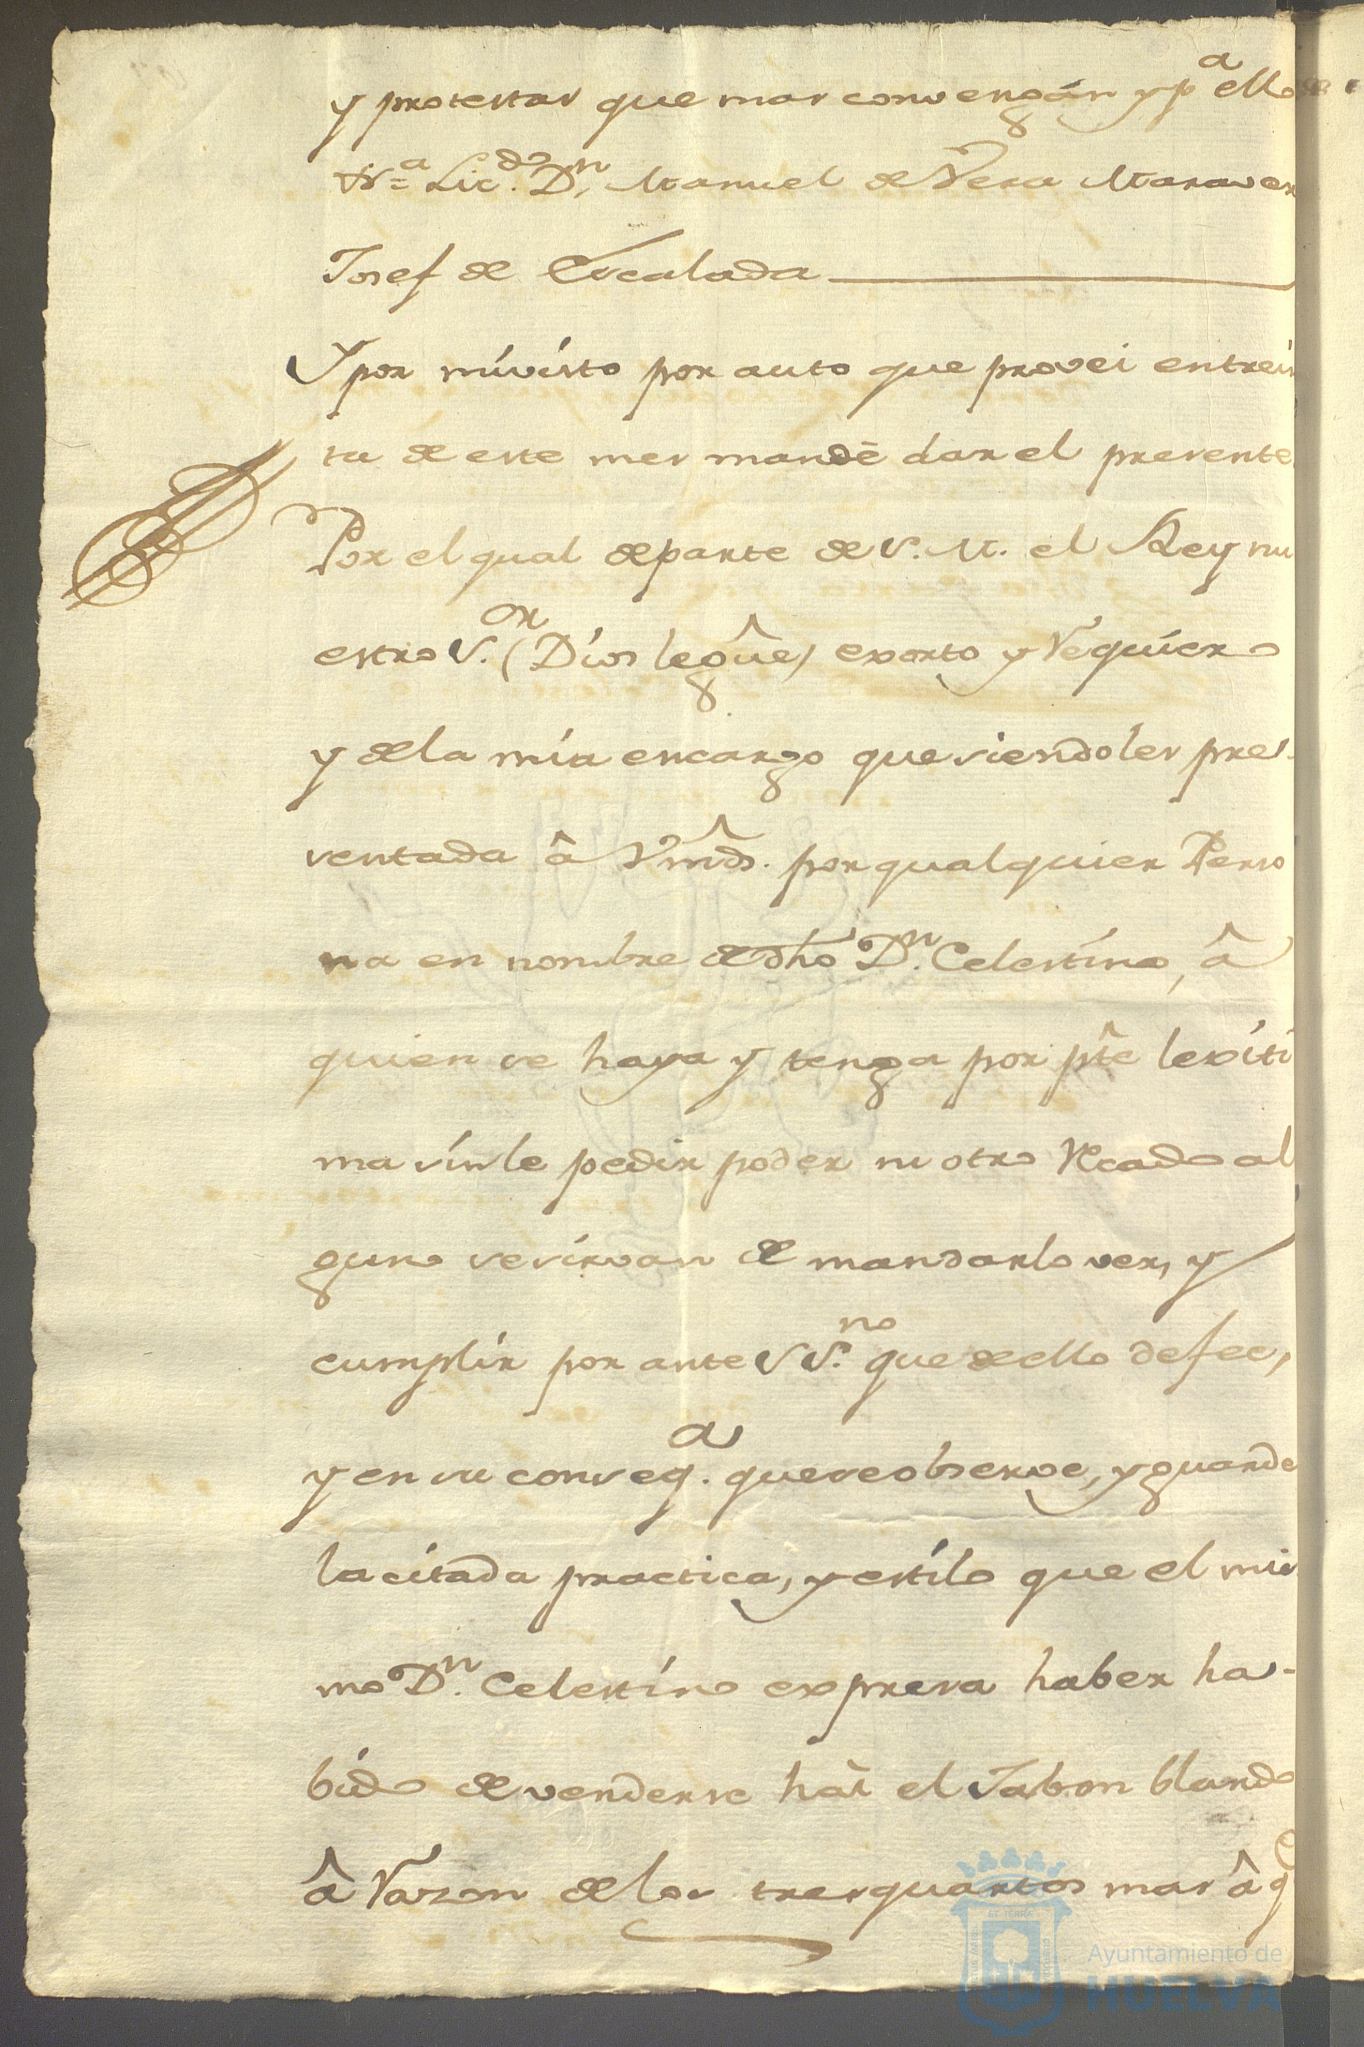 y protestas que mas convengan y p.ª ello
Lic.do D.n Manuel de Vera Maraver
Josef de Escalada
Y por mi visto por auto que provei en trein
ta de este mes mandè dar el presente
Por el qual de parte de S. M. el Rey nu
estro S.or (Dios le gûe) exorto y requiero
y de la mia encargo que siendoles pre-
sentada â Vmds. por qualquier Perso
na en nombre de dho D.n Celestino, â
quien se haya y tenga por pte lexiti
ma sin le pedir poder ni otro Recado al
guno se sirvan de mandarlo ver, y
cumplir por ante SS.no que de ello de fee,
y en su conseq.a que se observe, y guarde
la citada practica, y estilo que el mis
mo D.n Celestino expresa haber ha-
bido de venderse hàî el Jabon blando
â razon de los tres quartos mas â q.e
Ayuntamiento de
HUELVA